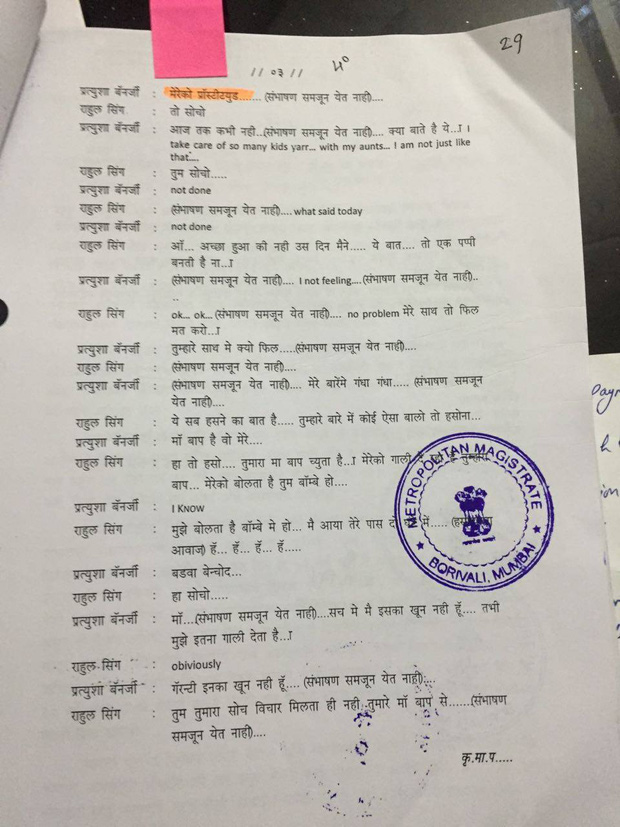 29
// ०३ //
प्रत्युशा बॅनर्जी : मेरेको प्रॉस्टीटयुड........ (संभाषण समजून येत नाही)....
राहुल सिंग : तो सोचो
प्रत्युशा बॅनर्जी : आज तक कभी नही..(संभाषण समजून येत नाही).... क्या बाते है ये...ा I
take care of so many kids yarr... with my aunts... I am not just like
that....
राहुल सिंग : तुम सोचो.....
प्रत्युशा बॅनर्जी : not done
राहुल सिंग : (संभाषण समजून येत नाही).... what said today
प्रत्युशा बॅनर्जी : not done
राहुल सिंग : ऑ... अच्छा हुआ की नही उस दिन मैने..... ये बात.... तो एक पप्पी
बनती है ना...ा
प्रत्युशा बॅनर्जी : (संभाषण समजून येत नाही).... I not feeling....(संभाषण समजून येत नाही)..
..
राहुल सिंग : ok... ok...(संभाषण समजून येत नाही).... no problem मेरे साथ तो फिल
मत करो...ा
प्रत्युशा बॅनर्जी : तुम्हारे साथ मे क्यो फिल.....(संभाषण समजून येत नाही)....
राहुल सिंग : (संभाषण समजून येत नाही)....
प्रत्युशा बॅनर्जी : (संभाषण समजून येत नाही).... मेरे बारेमेंं गंधा गंधा..... (संभाषण समजून
येत नाही)....
राहुल सिंग : ये सब हसने का बात है..... तुम्हारे बारे में कोई ऐसा बालो तो हसोना...
प्रत्युशा बॅनर्जी : माँ बाप है वो मेरे....
राहुल सिंग : हा तो हसो.... तुमारा मा बाप च्युता है...ा मेरेको गाली
बाप... मेरेको बोलता है तुम बॉम्बे हो....
प्रत्युशा बॅनर्जी : I KNow
राहुल सिंग : मुझे बोलता है बॉम्बे मे हो... मै आया तेरे पास में.....
आवाज) हॅ... हॅ... हॅ... हॅ.....
प्रत्युशा बॅनर्जी : बडवा बेन्चोद...
राहुल सिंग : हा सोचो.....
प्रत्युशा बॅनर्जी : माँ...(संभाषण समजून येत नाही)....सच मे मै इसका खून नही हूँ.... तभी
मुझे इतना गाली देता है...ा
राहुल सिंग : obiviously
प्रत्युशा बॅनर्जी : गॅरन्टी इनका खून नही हूँ.... (संभाषण समजून येत नाही)....
राहुल सिंग : तुम तुमारा सोच विचार मिलता ही नही..तुमारे माँ बाप से......(संभाषण
समजून येत नाही)....
कृ.मा.प.....
METROPOLITAN MAGISTRATE
BORIVALI, MUMBAI